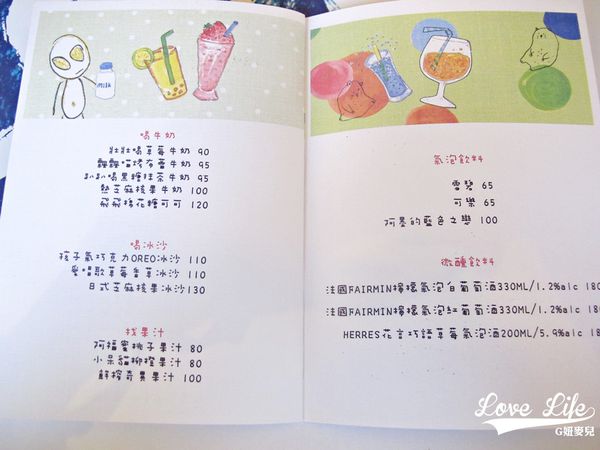 milk
喝牛奶
壯壯喝草莓牛奶 90
飄飄喵烤布蕾牛奶 95
趴趴喝黑糖抹茶牛奶 95
熱芝麻核果牛奶 100
飛飛棉花糖可可 120
喝冰沙
孩子氣巧克力OREO冰沙 110
愛唱歌草莓香草冰沙 110
日式芝麻核果冰沙130
找果汁
阿福蜜桃子果汁 80
小呆貓柳橙果汁 80
鮮榨奇異果汁 100
氣泡飲料
雪碧 65
可樂 65
阿墨的藍色之戀 100
微醺飲料
法國FAIRMIN檸檬氣泡白葡萄酒330ML/1.2%alc 180
法國FAIRMIN檸檬氣泡紅葡萄酒330ML/1.2%alc 180
HERRES花言巧語草莓氣泡酒200ML/5.9%alc 18
Love Life
G妞麥兒